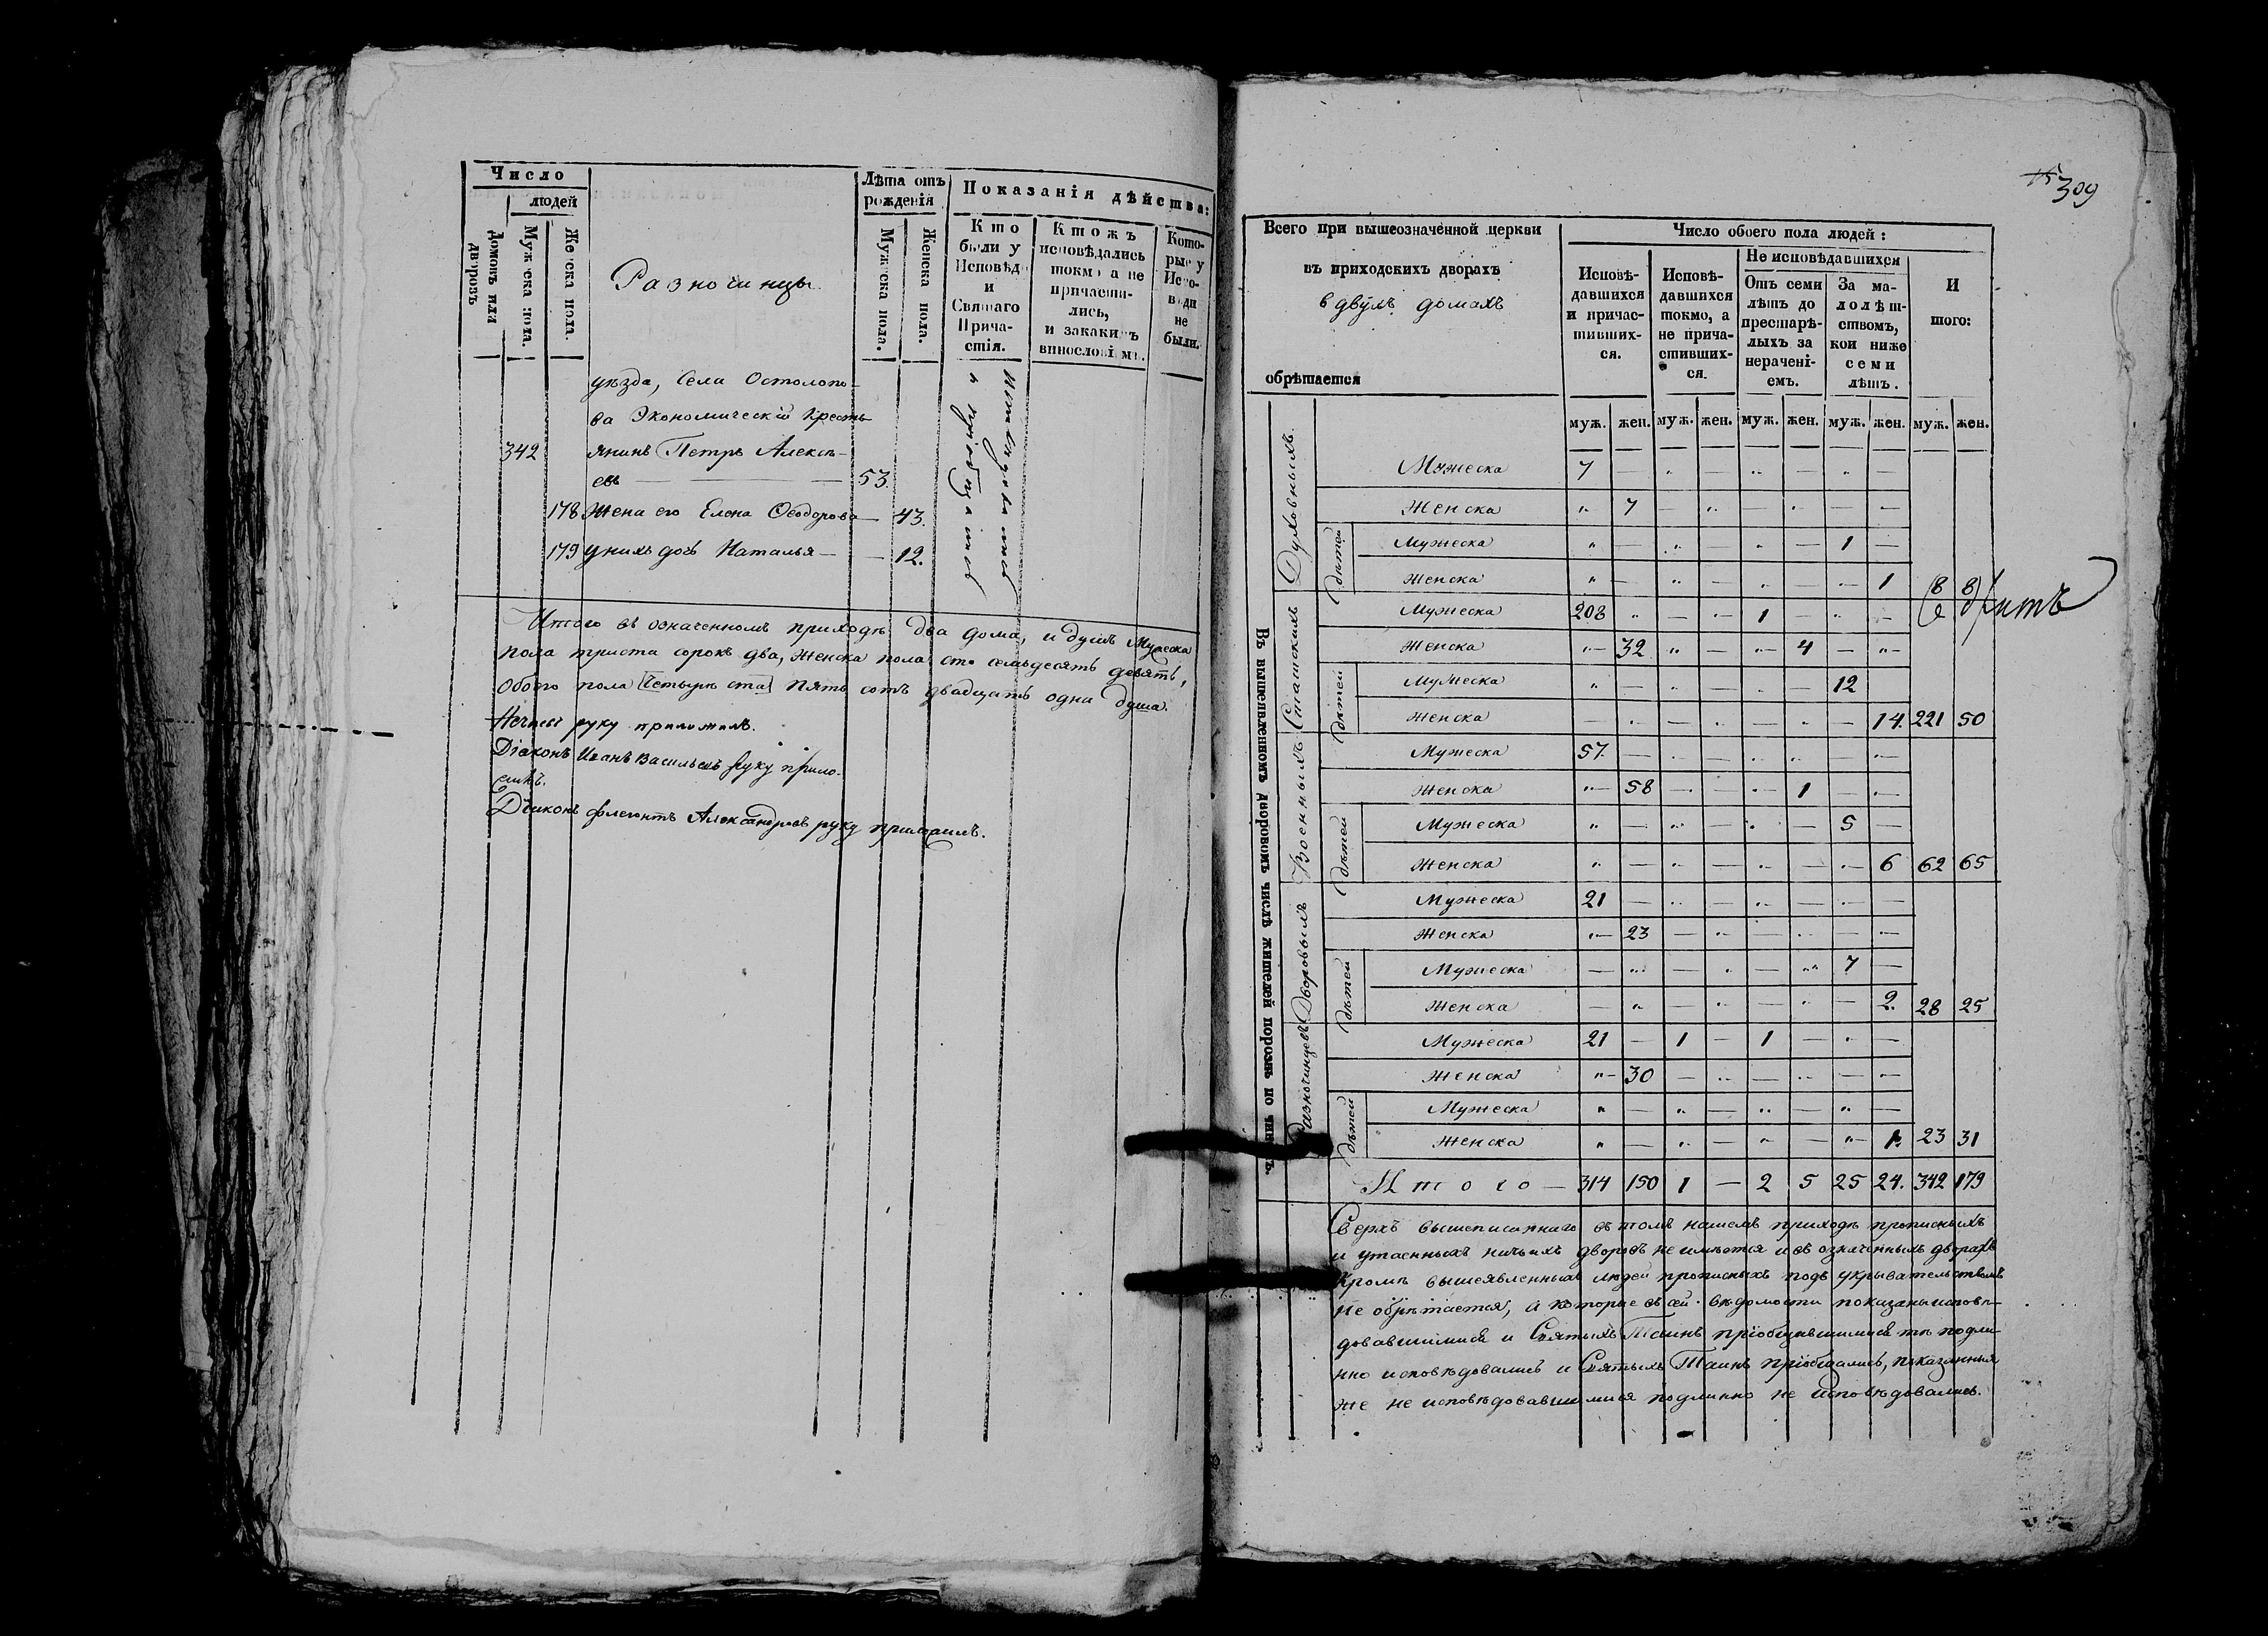 Число
людей
Домовъ или дворовъ
Мужеска пола.
Женска пола.
Разночинцы.
Лѣта отъ рожденія
Мужеска пола.
Женска пола.
Показанія дѣйства:
Кто были у Исповѣди и Святаго Причастія.
Ктожъ исповѣдались токмо а не причастились, и закакимъ винословіемъ.
Которые у Исповѣди не были.
уѣзда, Села Остолопо-
ва Экономическій кресть-
342 янинъ Петръ Алексѣ-
евъ — 53.
178 Жена его Елена Ѳеодорова — 43.
179 унихъ дочь Наталья — 12.
Итого въ означенномъ приходѣ два дома, и душъ Мужеска
пола триста сорокъ два, Женска пола сто семьдесятъ девять,
Обоего пола [четыре ста] пять сотъ двадцать одна душа.
руку приложилъ.
Діаконъ Иванъ Васильевъ руку прило-
жилъ.
Александровъ руку приложилъ.
309
Всего при вышеозначенной церкви
въ приходскихъ дворахъ
в двухъ домахъ
обрѣтается
Число обоего пола людей:
Исповѣдавшихся и причастившихся.
Исповѣдавшихся токмо, а не причастившихся.
Не исповѣдавшихся
Отъ семи лѣтъ до престарѣлыхъ за нераченіемъ.
За малолѣтствомъ, кои ниже семи лѣтъ.
И
того:
муж. жен. муж. жен. муж. жен. муж. жен. муж. жен.
Въ вышеявленномъ дворовомъ числѣ жителей порознь по чинамъ.
Духовныхъ
Мужеска 7 — „ — „ — „ —
Женска „ 7 — „ — „ — „—
дѣтей
Мужеска „ — „ — „ — 1 —
Женска „ — „ — „ — „— 1 8 8
Статскихъ
Мужеска 208 „ — „ 1 — „ —
Женска „— 32 „ — „— 4 — „—
дѣтей
Мужеска „ — „ — „ — 12
Женска — „ — „ — „ — 14. 221 50
Военныхъ
Мужеска 57. — „ — „ „ — „—
Женска „— 58 —„ — „— 1 — „—
дѣтей
Мужеска „ — „ — „ — 5 —
Женска „ — „ — „ — „— 6 62 65
Дворовыхъ
Мужеска 21 — „ — „ — „ —
Женска „— 23 — „ — „ — „—
дѣтей
Мужеска — „ — „ — „ 7 —
Женска — „ — „ — „ — 2. 28 25
Разночинцевъ
Мужеска 21 — 1 — 1 — „ —
Женска „— 30 — „ — „ — „—
дѣтей
Мужеска „ — „ — „ — „ —
Женска „ — „ — „ — „— 1. 23 31
Итого — 314 150 1 — 2 5 25 24. 342 179
Сверхъ вышеписаннаго въ томъ нашемъ приходѣ прописныхъ
и утаенныхъ ничьихъ дворовъ не имѣется и въ означенныхъ дворахъ
Кромѣ вышеявленныхъ людей прописныхъ подъ укрывательствомъ
не обрѣтается, а которые въ сей вѣдомости показаны исповѣ-
довавшимися и Святыхъ Таинъ пріобщившимися тѣ подли-
нно исповѣдовались и Святыхъ Таинъ пріобщались, показанныя
же не исповѣдовавшимися подлинно не исповѣдовались.